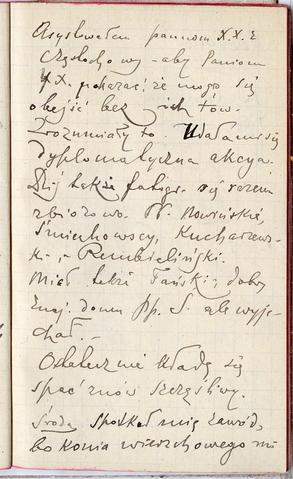 Asystowałem pannom X.X. z
Częstochowy - aby Paniom
X.X. pokazać, że mogę się
obejść bez ich tow.
Zrozumiały to. Udała mi się
dyplomatyczna akcya.
Dziś także fotogr. się razem
zbiorowo. Pp. Nowińskie,
Śmiechowscy, Kucharzew-
ski, - Rembieliński.
Miał także Fański, dobry
znaj. domu Pp. S. ale wyje-
chał. -
Ostatecznie kładę się
spać znów szczęśliwy.
Środa Spotkał mię zawód,
bo konia wierzchowego nie